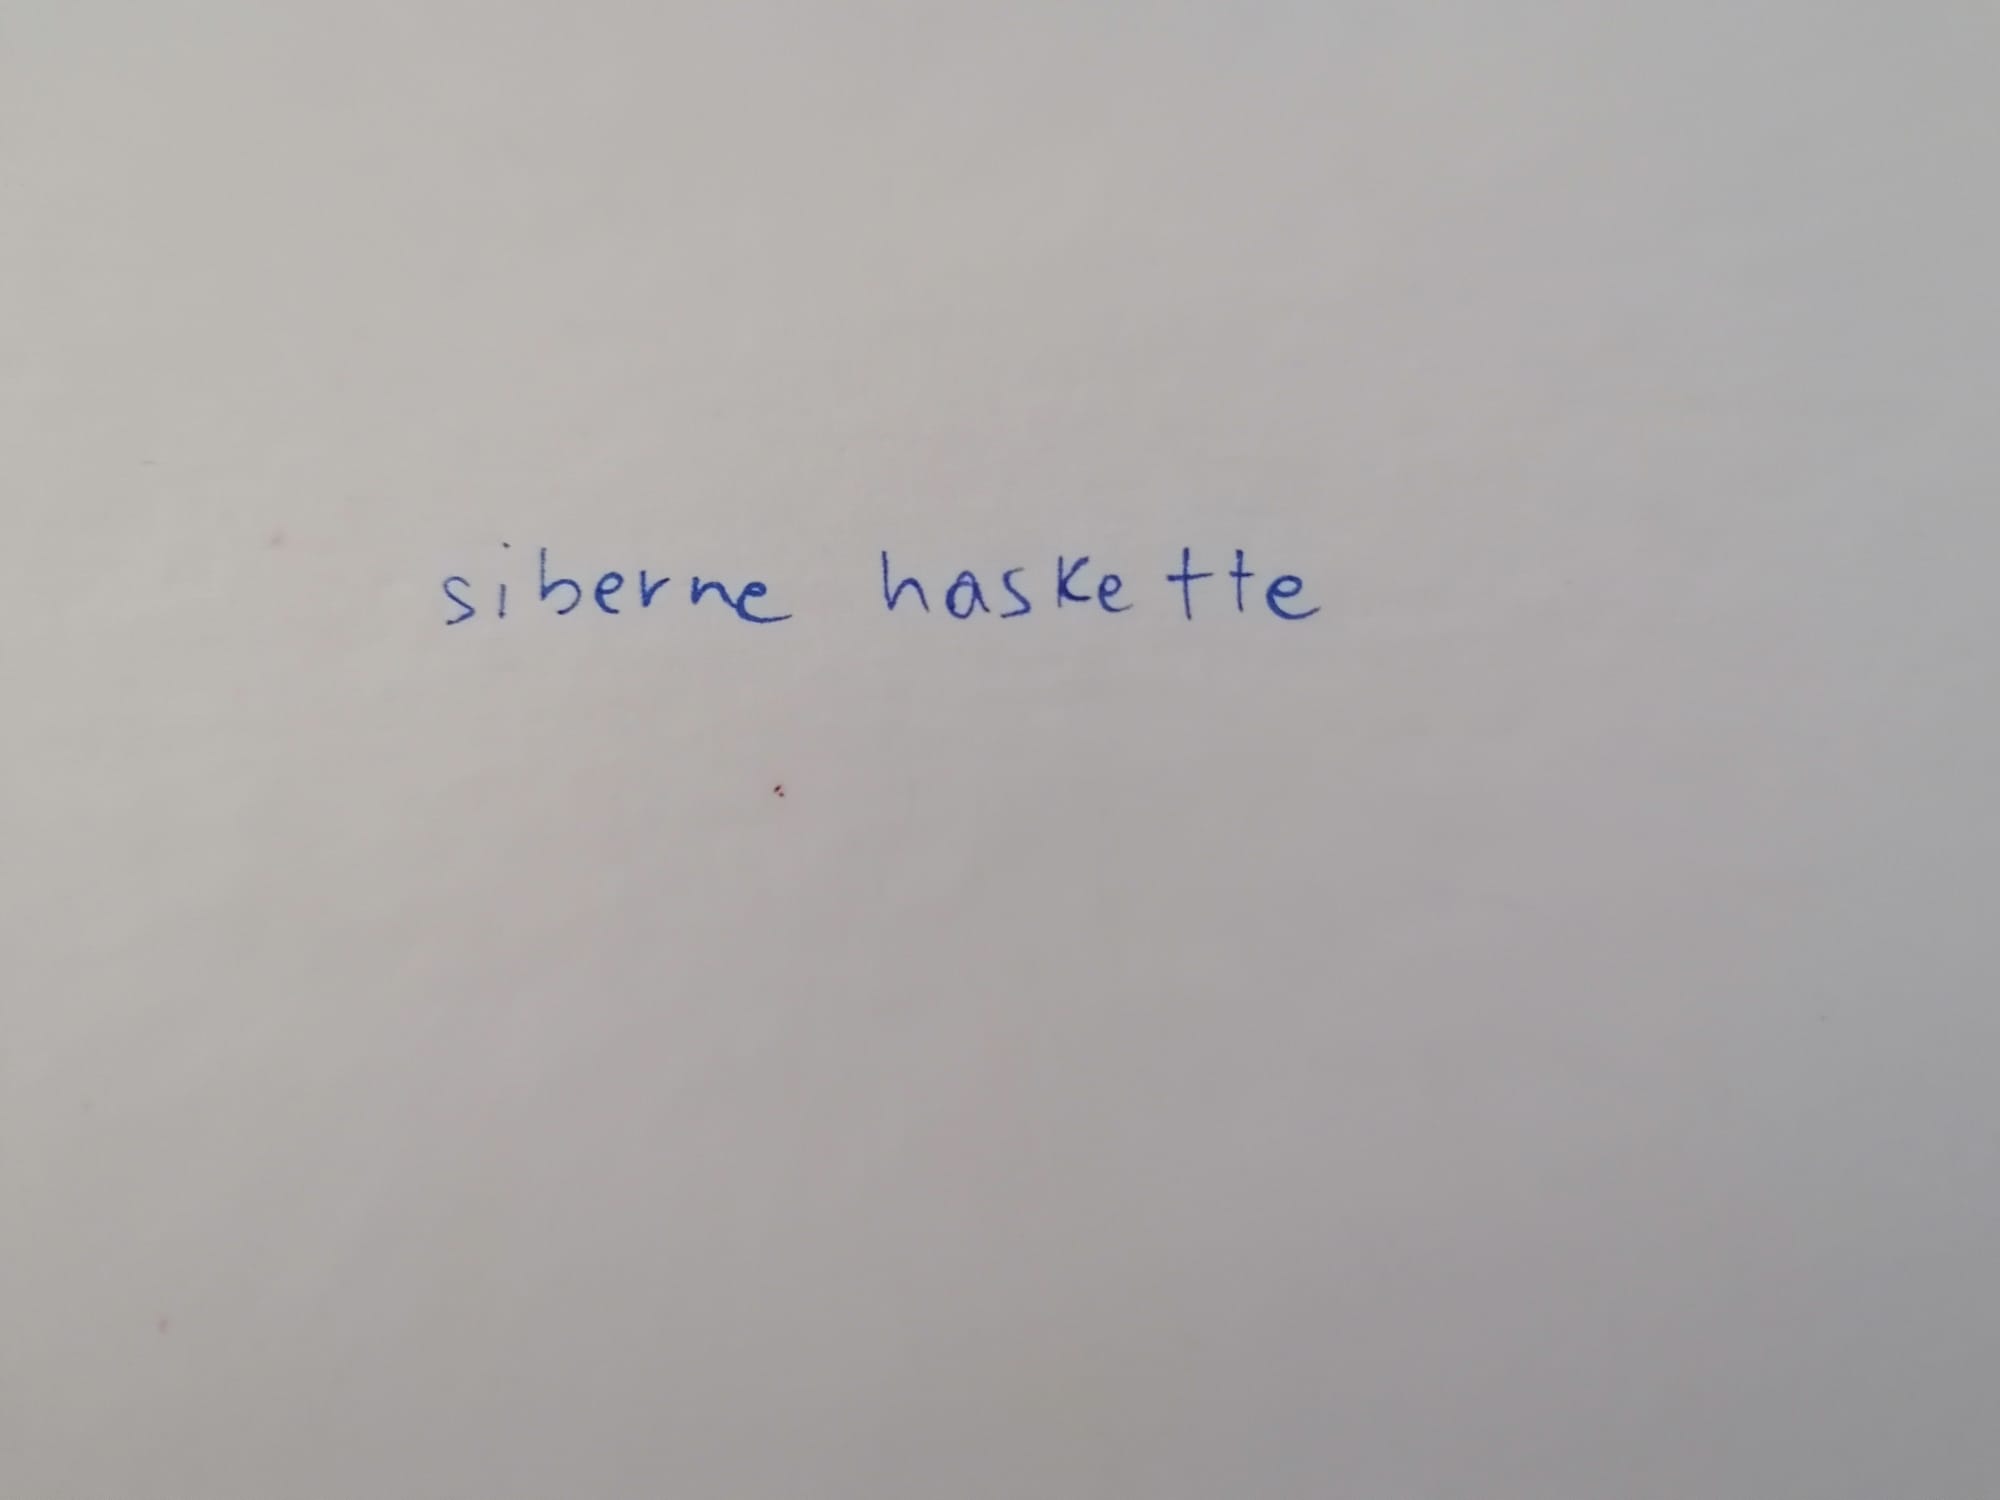 siberne haskette